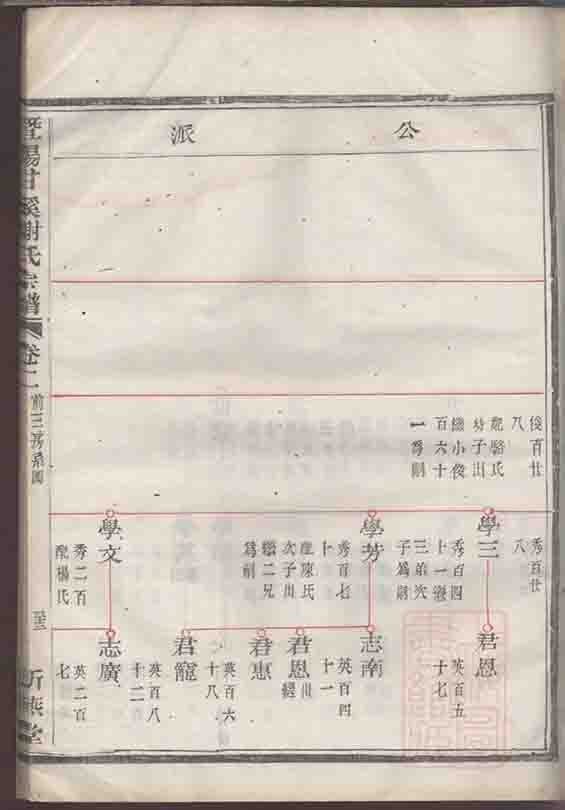 公派
俊百廿
八
配駱氏
幼子出
繼小俊
百六十
一爲嗣
秀百廿
八
學三
秀百四
十一
三弟次
子爲嗣
君恩
英百五
十七
學芳
秀百七
十
娶陳氏
次子出
繼二兄
爲嗣
志南
英百四
十一
君恩
出
君惠
君寵
英百六
十八
學文
秀二百
配楊氏
志廣
英百八
十二
英二百
七
暨陽甘溪謝氏宗譜
卷二
前三房系圖